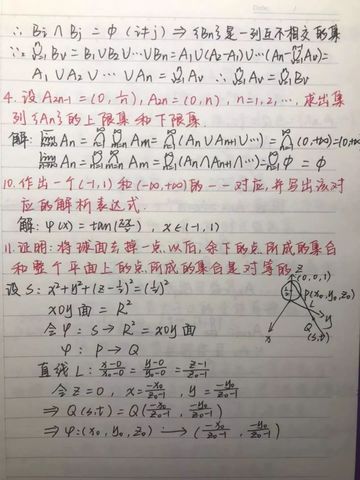 ∴ Bi ∩ Bj = φ (i≠j) ⇒ {Bn}是一列互不相交的集
∴ ⋃Bν = B₁∪B₂∪⋯∪Bn = A₁∪(A₂-A₁)∪⋯(An-⋃Aν)=
A₁ ∪ A₂ ∪ ⋯ ∪ An = ⋃Aν ∴ ⋃Aν = ⋃Bν
4. 设 A2n-1 = (0, 1/n), A2n = (0, n), n=1, 2, ⋯, 求出集
列{An}的上限集和下限集
解: lim An = ⋂ ⋃ Am = ⋂ (An ∪ An+1 ∪ ⋯) = ⋂ (0, +∞) = (0, +∞)
lim An = ⋃ ⋂ Am = ⋃ (An ∩ An+1 ∩ ⋯) = ⋃ φ = φ
10. 作出一个(-1, 1)和(-∞, +∞)的一一对应, 并写出该对
应的解析表达式.
解: φ(x) = tan(πx/2), x∈(-1, 1)
11. 证明: 将球面去掉一点以后, 余下的点所成的集合
和整个平面上的点所成的集合是对等的
设 S: x²+y²+(z-½)² = (½)²
xoy面 = R²
令 φ: S → R² = xoy面
φ: P → Q
直线 L: (x-0)/(x₀-0) = (y-0)/(y₀-0) = (z-1)/(z₀-1)
令 z=0, x = -x₀/(z₀-1), y = -y₀/(z₀-1)
⇒ Q(s,t) = Q(-x₀/(z₀-1), -y₀/(z₀-1))
⇒ φ: (x₀, y₀, z₀) ⟶ (-x₀/(z₀-1), -y₀/(z₀-1))
z
(0, 0, 1)
P(x₀, y₀, z₀)
L
y
x
Q
(s,t)